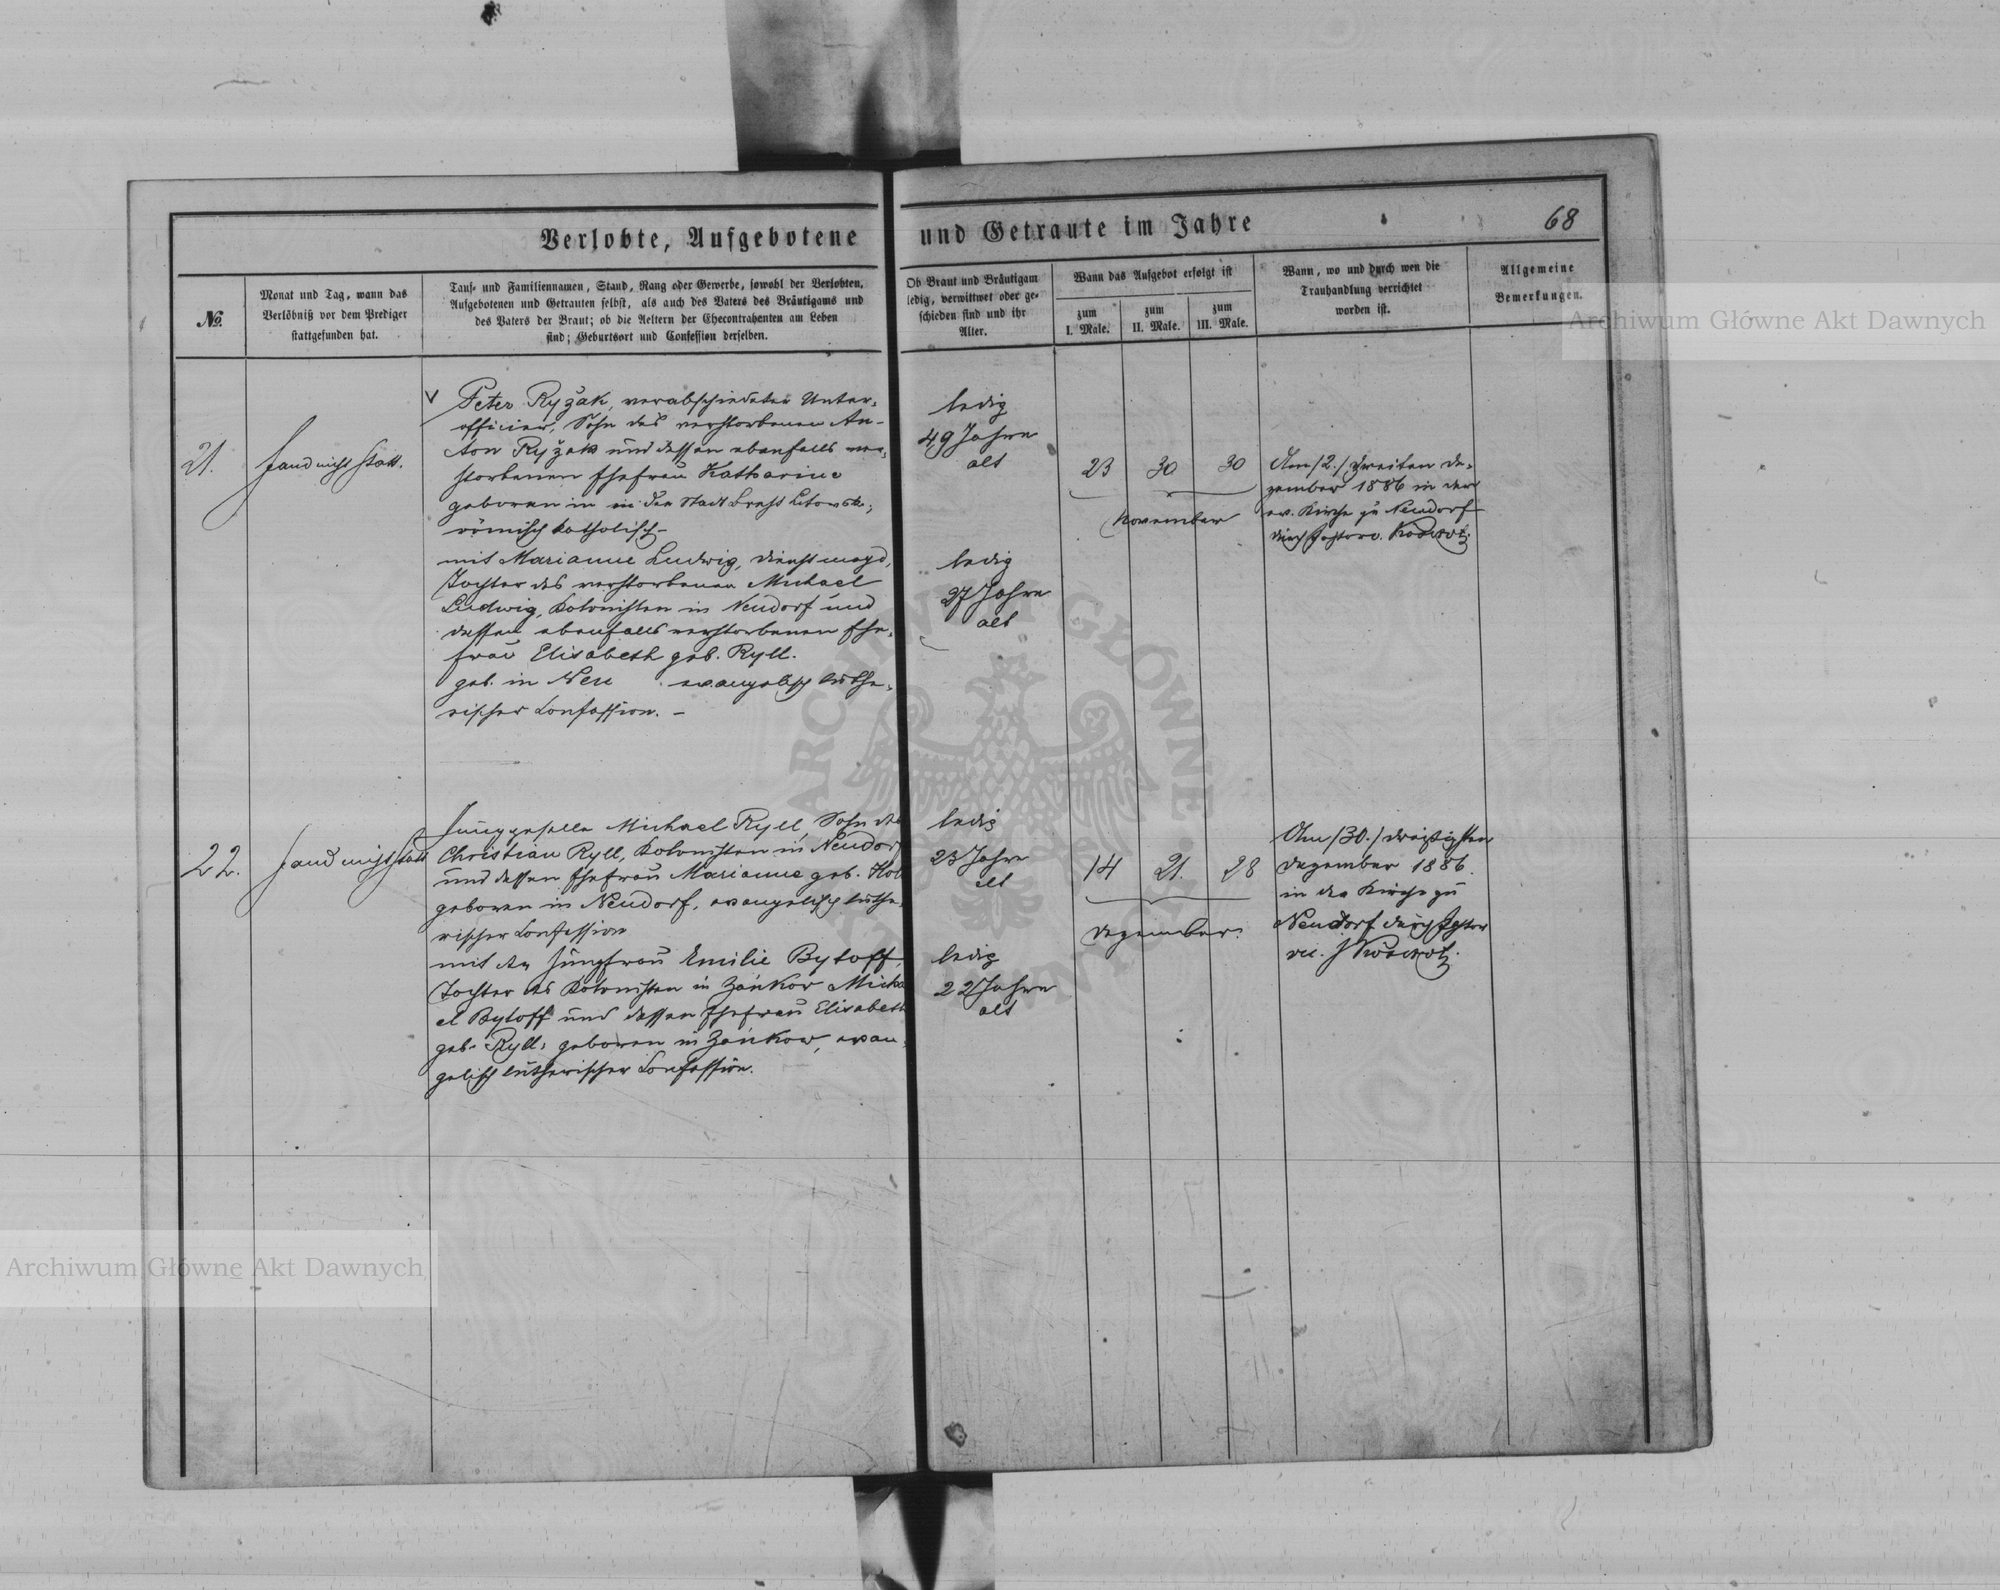 Verlobte, Aufgebotene und Getraute im Jahre
68
No.
Monat und Tag, wann das
Verlöbniß vor dem Prediger
stattgefunden hat.
Tauf- und Familiennamen, Stand, Rang oder Gewerbe, sowohl der Verlobten,
Aufgebotenen und Getrauten selbst, als auch des Vaters des Bräutigams und
des Vaters der Braut; ob die Aeltern der Ehecontrahenten am Leben
sind; Geburtsort und Confession derselben.
Ob Braut und Bräutigam
ledig, verwittwet oder ge-
schieden sind und ihr
Alter.
Wann das Aufgebot erfolgt ist
zum
I. Male.
zum
II. Male.
zum
III. Male.
Wann, wo und durch wen die
Trauhandlung verrichtet
worden ist.
Allgemeine
Bemerkungen.
21.
fand nicht statt.
Peter Ryžak, verabschiedeter Unter-
officier, Sohn des verstorbenen An-
ton Ryžak und dessen ebenfalls ver-
storbenen Ehefrau Katharine
geboren in in der Stadt Brest Litowsk;
römisch katholisch
mit Marianne Ludwig, Dienstmagd,
Tochter des verstorbenen Michael
Ludwig, Kolonisten in Neudorf und
dessen ebenfalls verstorbenen Ehe-
frau Elisabeth geb. Ryll.
geb. in Neu evangelisch luthe-
rischer Confession. –
ledig
49 Jahre
alt
ledig
27 Jahre
alt
23 30 30
November
Am /2./ zweiten De-
zember 1886 in der
ev. Kirche zu Neudorf
durch Pastor
22.
fand nicht statt
Junggeselle Michael Ryll, Sohn des
Christian Ryll, Kolonisten in Neudorf
und dessen Ehefrau Marianne geb. Hol
geboren in Neudorf, evangelisch luthe-
rischer Confession
mit der Jungfrau Emilie Bytoff,
Tochter des Kolonisten in Zánkow Micha
el Bytoff und dessen Ehefrau Elisabeth
geb. Ryll; geboren in Zánkow, evan-
gelisch lutherischer Confession.
ledig
23 Jahre
alt
ledig
22 Jahre
alt
14 21. 28
Dezember.
Am /30./ dreißigsten
Dezember 1886.
in der Kirche zu
Neudorf durch Pastor
vic. J
Archiwum Główne Akt Dawnych
Archiwum Główne Akt Dawnych
ARCHIWUM GŁÓWNE AKT DAWNYCH